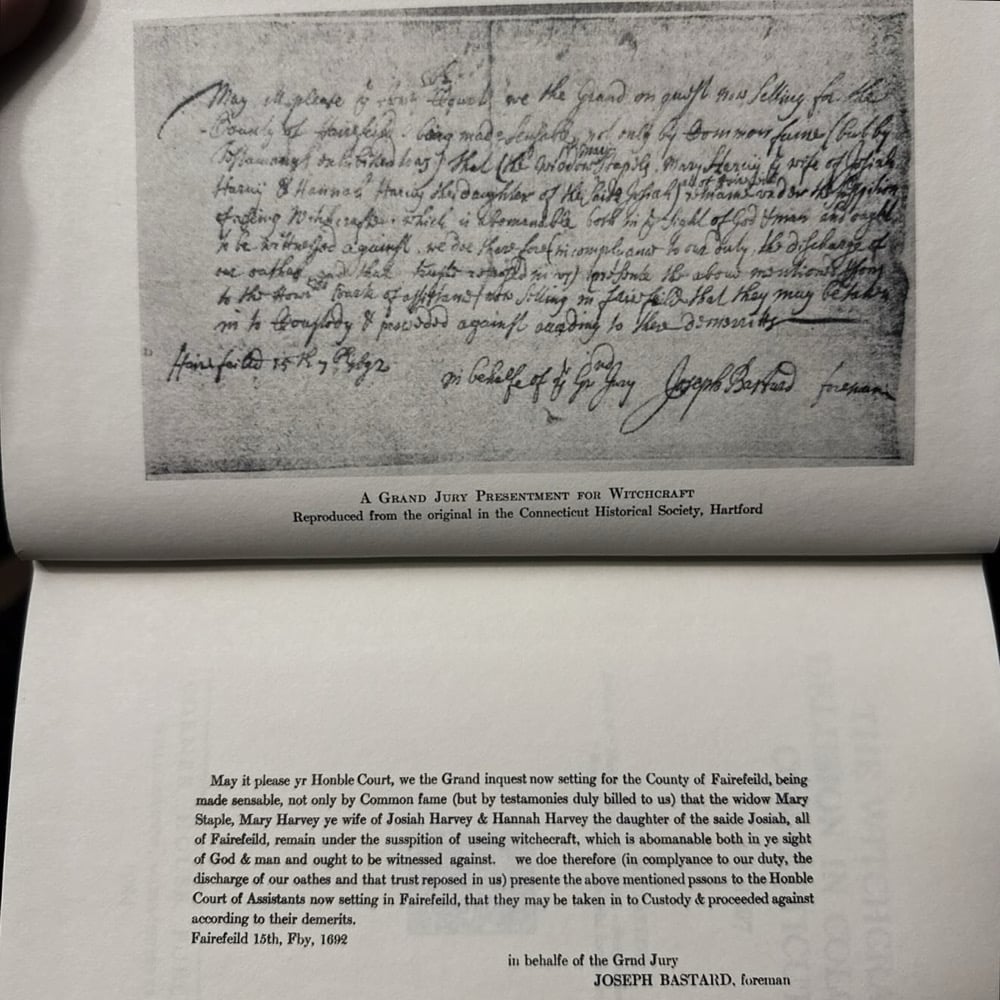 May it please yr honble Court, we the Grand in quest now setting for the
County of Fairefeild, being made sensable, not only by Common fame (but by
testamonyes duly billed to us) that (the widdow Mary Staple, Mary Harvy ye wife of Josiah
Harvy & Hannah Harvy the daughter of the saide Josiah) all of remaine under the susspition
of useing Witchcrafte, which is abomanable both in ye sight of God & man and ought
to be witnessed against. we doe therefore (in complyance to our duty, the discharge of
our oathes, and that truste reposed in us) presente the above mentioned pssons
to the Honble Courte of assistance now setting in Fairefeild that they may be taken
in to Coustody & proceded against according to there demerritts
Fairefeild 15th 7br 1692
in behalfe of ye Grnd Jury Joseph Bastard foreman
A GRAND JURY PRESENTMENT FOR WITCHCRAFT
Reproduced from the original in the Connecticut Historical Society, Hartford
May it please yr Honble Court, we the Grand inquest now setting for the County of Fairefeild, being
made sensable, not only by Common fame (but by testamonies duly billed to us) that the widow Mary
Staple, Mary Harvey ye wife of Josiah Harvey & Hannah Harvey the daughter of the saide Josiah, all
of Fairefeild, remain under the susspition of useing witchecraft, which is abomanable both in ye sight
of God & man and ought to be witnessed against. we doe therefore (in complyance to our duty, the
discharge of our oathes and that trust reposed in us) presente the above mentioned pssons to the Honble
Court of Assistants now setting in Fairefeild, that they may be taken in to Custody & proceeded against
according to their demerits.
Fairefeild 15th, Fby, 1692
in behalfe of the Grnd Jury
JOSEPH BASTARD, foreman